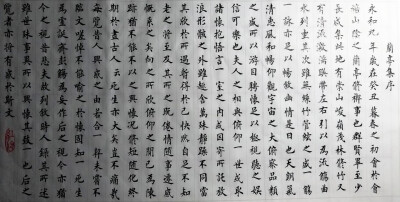 蘭亭集序
永和九年歲在癸丑暮春之初會於會
稽山陰之蘭亭脩禊事也群賢畢至少
長咸集此地有崇山峻領茂林脩竹又
有清流激湍暎帶左右引以為流觴曲
水列坐其次雖無絲竹管絃之盛一觴
一詠亦足以暢敘幽情是日也天朗氣
清惠風和暢仰觀宇宙之大俯察品類
之盛所以遊目騁懷足以極視聽之娛
信可樂也夫人之相與俯仰一世或取
諸懷抱悟言一室之內或因寄所託放
浪形骸之外雖趣舍萬殊靜躁不同當
其欣於所遇暫得於己快然自足不知
老之將至及其所之既倦情隨事遷感
慨係之矣向之所欣俛仰之間已為陳
跡猶不能不以之興懷況脩短隨化終
期於盡古人云死生亦大矣豈不痛哉
每覽昔人興感之由若合一契未嘗不
臨文嗟悼不能喻之於懷固知一死生
為虛誕齊彭殤為妄作後之視今亦猶
今之視昔悲夫故列敘時人錄其所述
雖世殊事異所以興懷其致一也後之
覽者亦將有感於斯文